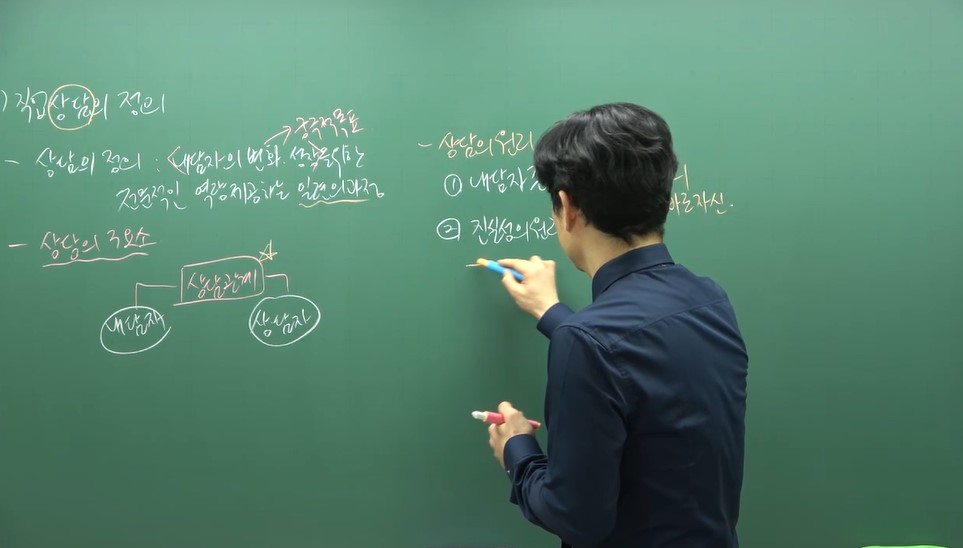 ) 직업상담의 정의
궁극적목표
- 상담의 정의 : 내담자의 변화. 성장을위하는
전문적인 역량제공하는 일련의과정
- 상담의 주요소
상담관계
내담자 상담자
- 상담의 원리
① 내담자
바로자신.
② 진실성의원리